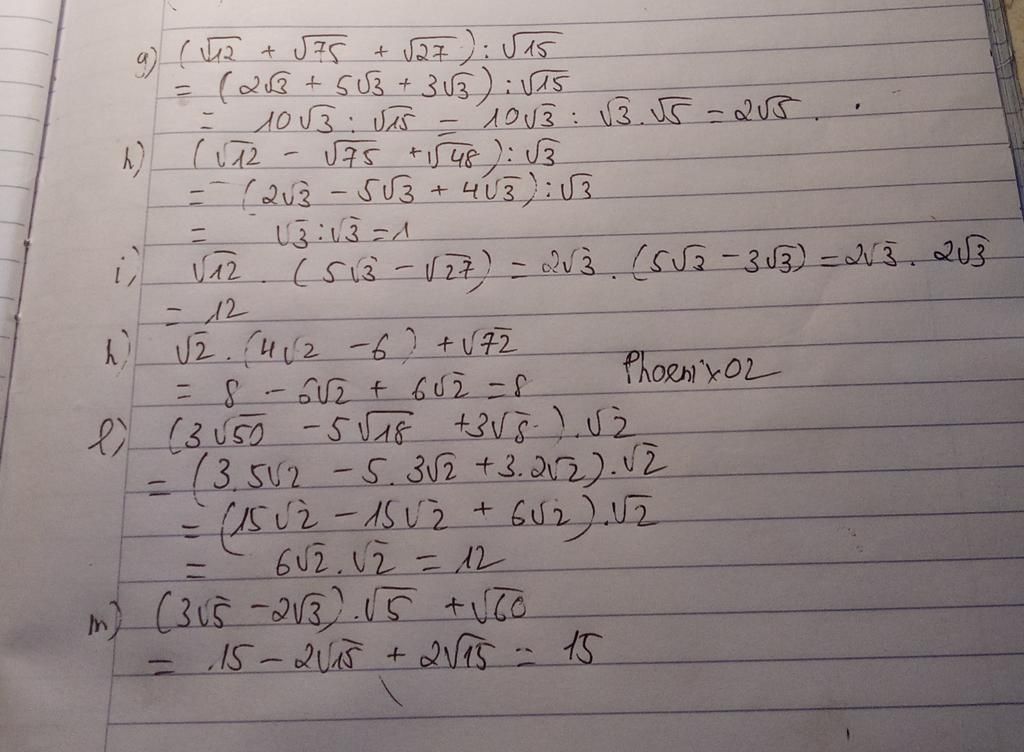 g) (√12 + √75 + √27) : √15
= (2√3 + 5√3 + 3√3) : √15
= 10√3 : √15 = 10√3 : √3.√5 = 2√5.
h) (√12 - √75 + √48) : √3
= (2√3 - 5√3 + 4√3) : √3
= √3 : √3 = 1
i) √12 . (5√3 - √27) = 2√3 . (5√3 - 3√3) = 2√3 . 2√3
= 12
h) √2 . (4√2 - 6) + √72
= 8 - 6√2 + 6√2 = 8
Phoenix02
l) (3√50 - 5√18 + 3√8) . √2
= (3.5√2 - 5.3√2 + 3.2√2).√2
= (15√2 - 15√2 + 6√2).√2
= 6√2.√2 = 12
m) (3√5 - 2√3).√5 + √60
= 15 - 2√15 + 2√15 = 15